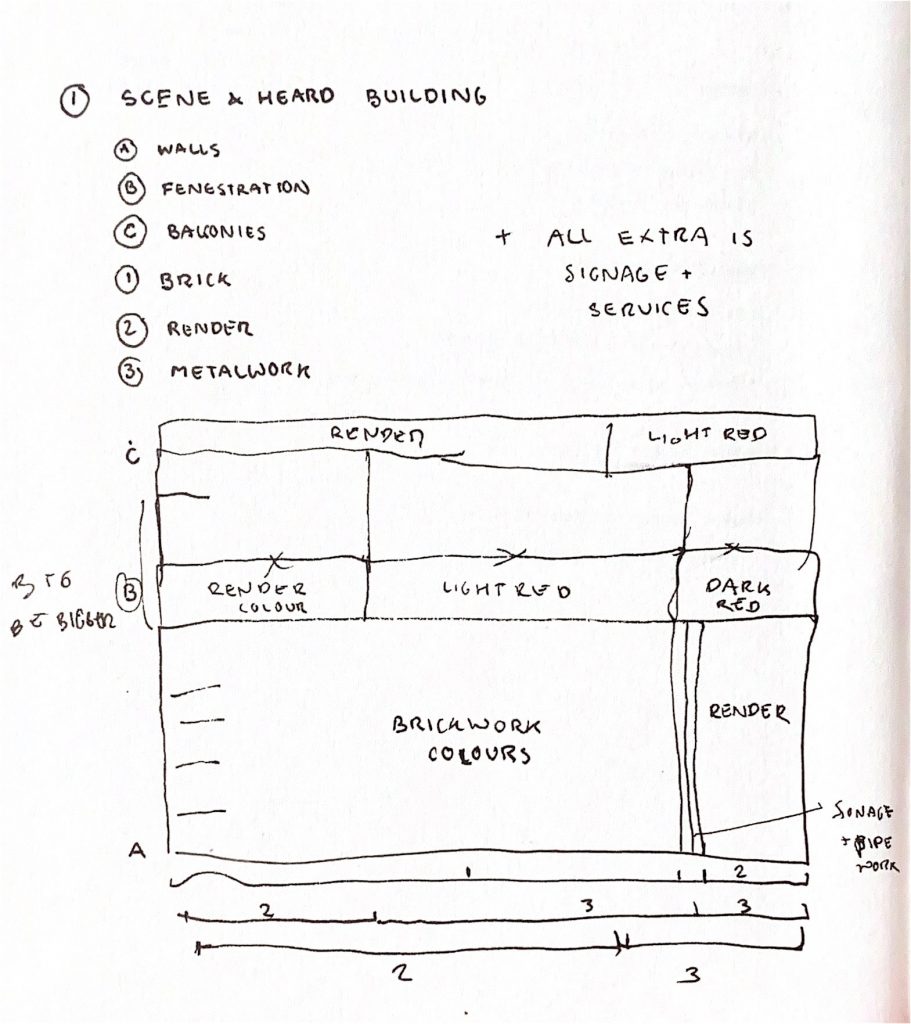 ① SCENE & HEARD BUILDING
Ⓐ WALLS
Ⓑ FENESTRATION
Ⓒ BALCONIES
① BRICK
② RENDER
③ METALWORK
+ ALL EXTRA IS
SIGNAGE +
SERVICES
RENDER
LIGHT RED
C
Ⓑ
B TO
BE BIGGER
RENDER
COLOUR
LIGHT RED
DARK
RED
BRICKWORK
COLOURS
RENDER
SIGNAGE
+ PIPE
WORK
A
1 2
2 3 3
2 3